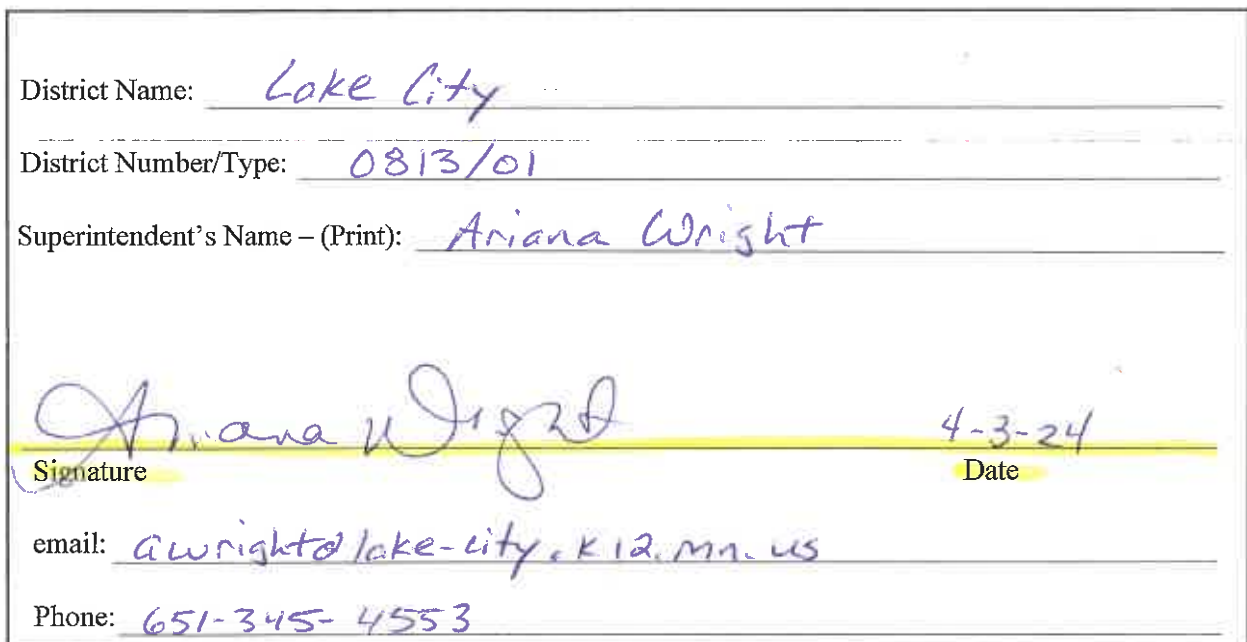 District Name: Lake City
District Number/Type: 0813/01
Superintendent's Name – (Print): Ariana Wright
Ariana Wright 4-3-24
Signature Date
email: awright@lake-city.k12.mn.us
Phone: 651-345-4553